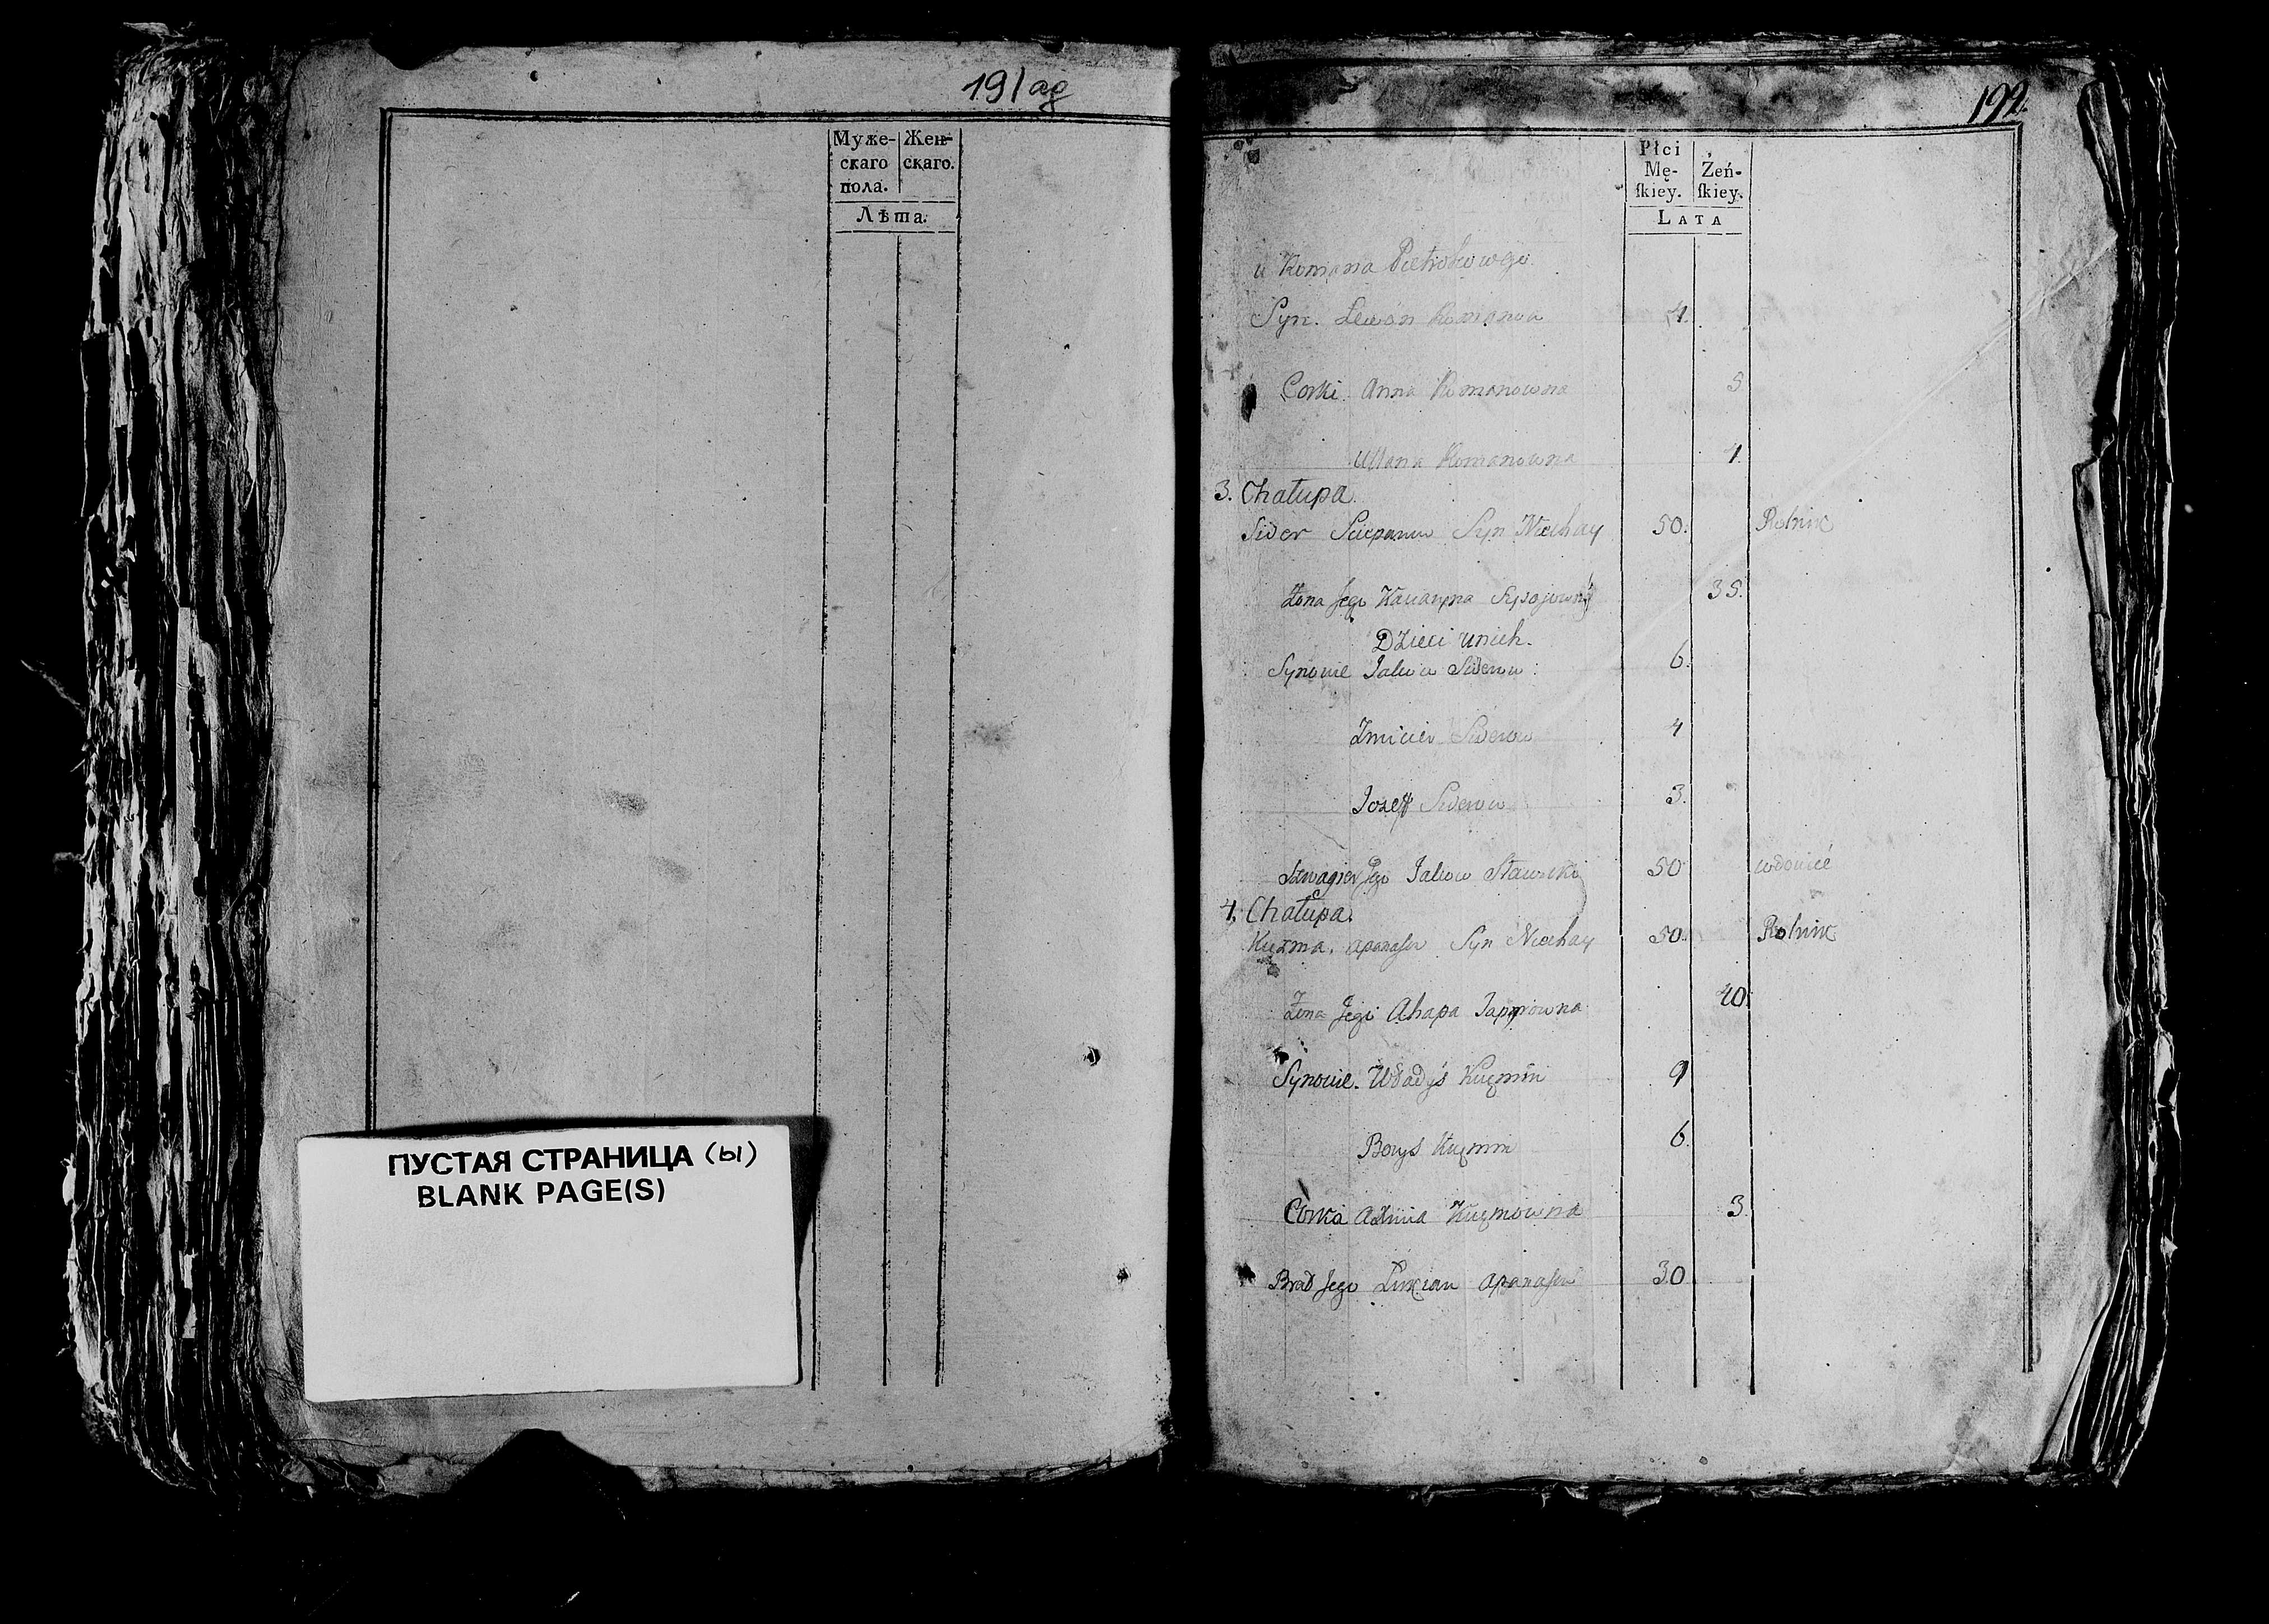 191 ag
Муже-
скаго
пола.
Жен-
скаго.
Лѣта.
ПУСТАЯ СТРАНИЦА (ы)
BLANK PAGE(S)
192.
Płci
Mę-
skiey.
Żeń-
skiey.
LATA
u Romana Pietrokowgo.
Syn. Lewon Romanow 4.
Corki Anna Romanowna 5
Ullana Romanowna 1.
3. Chałupa.
Sider Sciepanow Syn Niechay 50. Rolnik
Żona Jego 35.
Dzieci unich.
Synowie Jakow Siderow: 6.
Zmicier Siderow 4
Jozeff Siderow 3.
Szwagier Jego Jakow 50 wdowiec
4. Chałupa.
Kuzma. Apanasow Syn Niechay 50. Rolnik
Żona Jego Ahapa 40.
Synowie. Kuzmin 9
Borys Kuzmin 6.
Corka Kuzmowna 3.
Brad Jego Łukian Apanasow 30